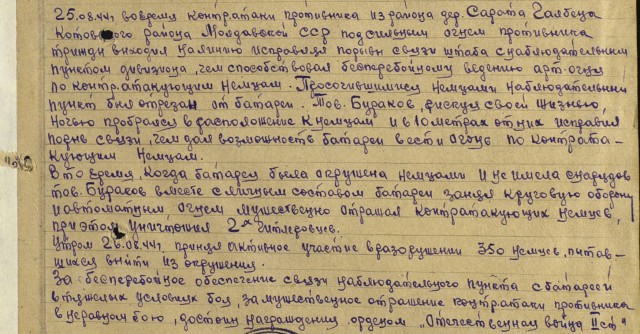 25.08.44г. во время контратаки противника из района дер. Сарата Галбена
Котовского района Молдавской ССР под сильным огнем противника
трижды выходил на линию исправляя порывы связи штаба с наблюдательным
пунктом дивизиона, чем способствовал бесперебойному ведению арт-огня
по контратакующим немцам. Просочившимися немцами наблюдательный
пункт был отрезан от батареи. Тов. Бураков, рискуя своей жизнью,
ночью пробрался в расположение к немцам и в 10 метрах от них исправил
порыв связи, чем дал возможность батареи вести огонь по контрата-
кующим немцам.
В то время, когда батарея была окружена немцами и не имела снарядов
тов. Бураков вместе с личным составом батареи занял круговую оборону
и автоматным огнем мужественно отражал контратакующих немцев,
при этом уничтожил 2х гитлеровцев.
Утром 26.08.44г. принял активное участие в разоружении 350 немцев, пытав-
шихся выйти из окружения.
За бесперебойное обеспечение связи наблюдательного пункта с батареей
в тяжелых условиях боя, за мужественное отражение контратаки противника
в неравном бою, достоин награждения орденом „Отечественная война II ст"